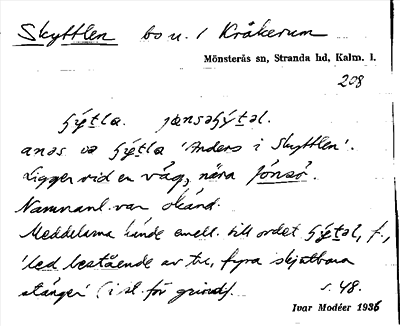 Skyttlen bo u. / Kråkerum
Mönsterås sn, Stranda hd, Kalm. l.
208
ʃýtla. jɔnsəʃýtəl.
anəs va ʃýtla 'Anders i Skyttlen'.
Ligger vid en våg, nära Jónsö.
Namnanl. var okänd.
Meddelarna kände emell. till ordet ʃýtəl, f.,
'led bestående av tre, fyra skjutbara
stänger (i st. för grind)'. s. 48.
Ivar Modéer 1936